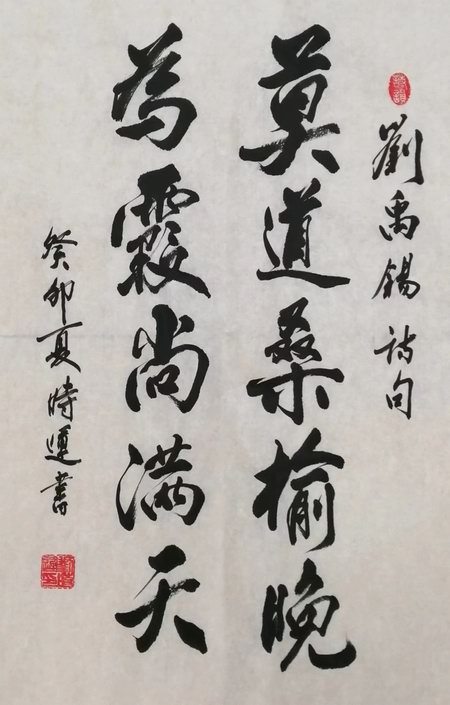 劉禹錫詩句
莫道桑榆晚
為霞尚满天
癸卯夏時運書